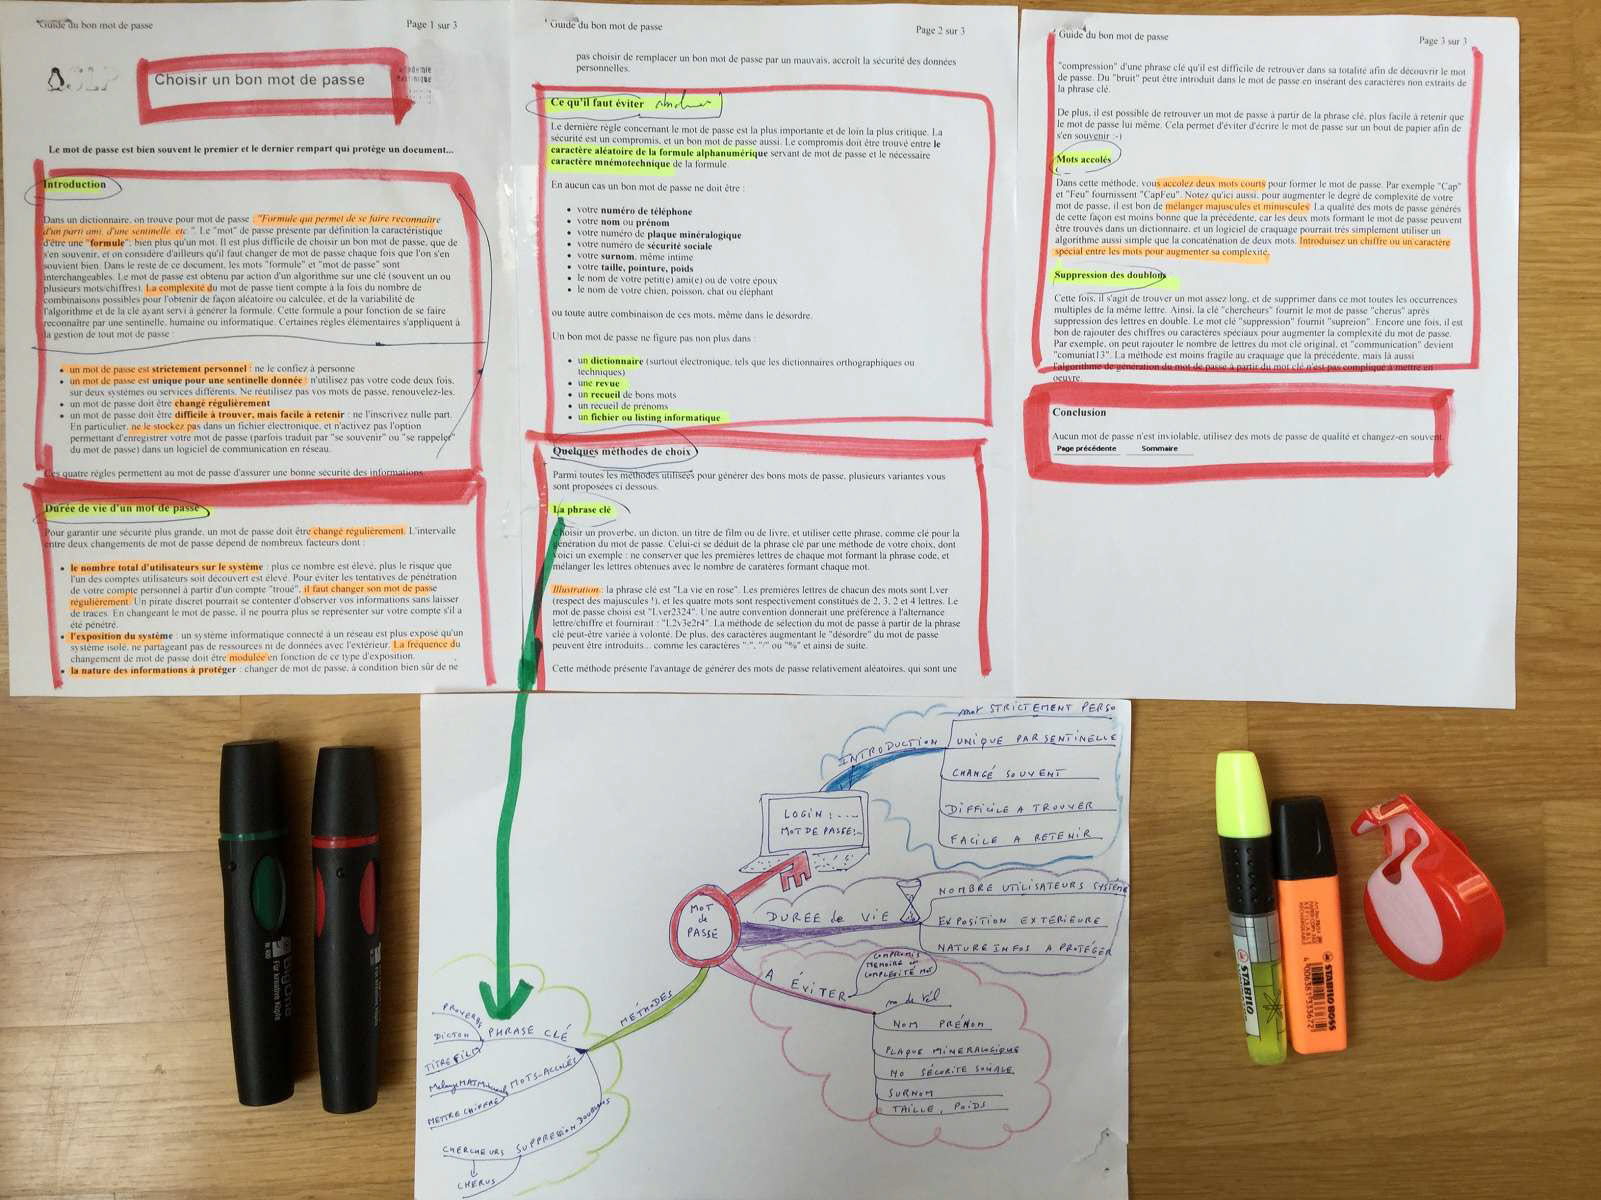 Guide du bon mot de passe
Page 1 sur 3
Choisir un bon mot de passe
Le mot de passe est bien souvent le premier et le dernier rempart qui protège un document...
Introduction
Dans un dictionnaire, on trouve pour mot de passe : "Formule qui permet de se faire reconnaître
d'un parti ami, d'une sentinelle, etc.". Le "mot" de passe présente par définition la caractéristique
d'être une "formule", bien plus qu'un mot. Il est plus difficile de choisir un bon mot de passe, que de
s'en souvenir, et on considère d'ailleurs qu'il faut changer de mot de passe chaque fois que l'on s'en
souvient bien. Dans le reste de ce document, les mots "formule" et "mot de passe" sont
interchangeables. Le mot de passe est obtenu par action d'un algorithme sur une clé (souvent un ou
plusieurs mots/chiffres). La complexité du mot de passe tient compte à la fois du nombre de
combinaisons possibles pour l'obtenir de façon aléatoire ou calculée, et de la variabilité de
l'algorithme et de la clé ayant servi à générer la formule. Cette formule a pour fonction de se faire
reconnaître par une sentinelle, humaine ou informatique. Certaines règles élémentaires s'appliquent à
la gestion de tout mot de passe :
• un mot de passe est strictement personnel : ne le confiez à personne
• un mot de passe est unique pour une sentinelle donnée : n'utilisez pas votre code deux fois,
sur deux systèmes ou services différents. Ne réutilisez pas vos mots de passe, renouvelez-les.
• un mot de passe doit être changé régulièrement
• un mot de passe doit être difficile à trouver, mais facile à retenir : ne l'inscrivez nulle part.
En particulier, ne le stockez pas dans un fichier électronique, et n'activez pas l'option
permettant d'enregistrer votre mot de passe (parfois traduit par "se souvenir" ou "se rappeler"
du mot de passe) dans un logiciel de communication en réseau.
Ces quatre règles permettent au mot de passe d'assurer une bonne sécurité des informations.
Durée de vie d'un mot de passe
Pour garantir une sécurité plus grande, un mot de passe doit être changé régulièrement. L'intervalle
entre deux changements de mot de passe dépend de nombreux facteurs dont :
• le nombre total d'utilisateurs sur le système : plus ce nombre est élevé, plus le risque que
l'un des comptes utilisateurs soit découvert est élevé. Pour éviter les tentatives de pénétration
de votre compte personnel à partir d'un compte "troué", il faut changer son mot de passe
régulièrement. Un pirate discret pourrait se contenter d'observer vos informations sans laisser
de traces. En changeant le mot de passe, il ne pourra plus se représenter sur votre compte s'il a
été pénétré.
• l'exposition du système : un système informatique connecté à un réseau est plus exposé qu'un
système isolé, ne partageant pas de ressources ni de données avec l'extérieur. La fréquence du
changement de mot de passe doit être modulée en fonction de ce type d'exposition.
• la nature des informations à protéger : changer de mot de passe, à condition bien sûr de ne
Guide du bon mot de passe
Page 2 sur 3
pas choisir de remplacer un bon mot de passe par un mauvais, accroît la sécurité des données
personnelles.
Ce qu'il faut éviter
Le dernière règle concernant le mot de passe est la plus importante et de loin la plus critique. La
sécurité est un compromis, et un bon mot de passe aussi. Le compromis doit être trouvé entre le
caractère aléatoire de la formule alphanumérique servant de mot de passe et le nécessaire
caractère mnémotechnique de la formule.
En aucun cas un bon mot de passe ne doit être :
• votre numéro de téléphone
• votre nom ou prénom
• votre numéro de plaque minéralogique
• votre numéro de sécurité sociale
• votre surnom, même intime
• votre taille, pointure, poids
• le nom de votre petit(e) ami(e) ou de votre époux
• le nom de votre chien, poisson, chat ou éléphant
ou toute autre combinaison de ces mots, même dans le désordre.
Un bon mot de passe ne figure pas non plus dans :
• un dictionnaire (surtout électronique, tels que les dictionnaires orthographiques ou
techniques)
• une revue
• un recueil de bons mots
• un recueil de prénoms
• un fichier ou listing informatique
Quelques méthodes de choix
Parmi toutes les méthodes utilisées pour générer des bons mots de passe, plusieurs variantes vous
sont proposées ci dessous.
La phrase clé
Choisir un proverbe, un dicton, un titre de film ou de livre, et utiliser cette phrase, comme clé pour la
génération du mot de passe. Celui-ci se déduit de la phrase clé par une méthode de votre choix, dont
voici un exemple : ne conserver que les premières lettres de chaque mot formant la phrase code, et
mélanger les lettres obtenues avec le nombre de caratères formant chaque mot.
Illustration : la phrase clé est "La vie en rose". Les premières lettres de chacun des mots sont Lver
(respect des majuscules !), et les quatre mots sont respectivement constitués de 2, 3, 2 et 4 lettres. Le
mot de passe choisi est "Lver2324". Une autre convention donnerait une préférence à l'alternance
lettre/chiffre et fournirait : "L2v3e2r4". La méthode de sélection du mot de passe à partir de la phrase
clé peut-être variée à volonté. De plus, des caractères augmentant le "désordre" du mot de passe
peuvent être introduits... comme les caractères ":", "/" ou "%" et ainsi de suite.
Cette méthode présente l'avantage de générer des mots de passe relativement aléatoires, qui sont une
Guide du bon mot de passe
Page 3 sur 3
"compression" d'une phrase clé qu'il est difficile de retrouver dans sa totalité afin de découvrir le mot
de passe. Du "bruit" peut être introduit dans le mot de passe en insérant des caractères non extraits de
la phrase clé.
De plus, il est possible de retrouver un mot de passe à partir de la phrase clé, plus facile à retenir que
le mot de passe lui même. Cela permet d'éviter d'écrire le mot de passe sur un bout de papier afin de
s'en souvenir :-)
Mots accolés
Dans cette méthode, vous accolez deux mots courts pour former le mot de passe. Par exemple "Cap"
et "Feu" fournissent "CapFeu". Notez qu'ici aussi, pour augmenter le degré de complexité de votre
mot de passe, il est bon de mélanger majuscules et minuscules. La qualité des mots de passe générés
de cette façon est moins bonne que la précédente, car les deux mots formant le mot de passe peuvent
être trouvés dans un dictionnaire, et un logiciel de craquage pourrait très simplement utiliser un
algorithme aussi simple que la concaténation de deux mots. Introduisez un chiffre ou un caractère
spécial entre les mots pour augmenter sa complexité.
Suppression des doublons
Cette fois, il s'agit de trouver un mot assez long, et de supprimer dans ce mot toutes les occurrences
multiples de la même lettre. Ainsi, la clé "chercheurs" fournit le mot de passe "cherus" après
suppression des lettres en double. Le mot clé "suppression" fournit "supreion". Encore une fois, il est
bon de rajouter des chiffres ou caractères spéciaux pour augmenter la complexité du mot de passe.
Par exemple, on peut rajouter le nombre de lettres du mot clé original, et "communication" devient
"comuniat13". La méthode est moins fragile au craquage que la précédente, mais là aussi
l'algorithme de génération du mot de passe à partir du mot clé n'est pas compliqué à mettre en
oeuvre.
Conclusion
Aucun mot de passe n'est inviolable, utilisez des mots de passe de qualité et changez-en souvent.
Page précédente
Sommaire
MOT
de
PASSE
LOGIN:....
MOT DE PASSE:..
INTRODUCTION
mot STRICTEMENT PERSO
UNIQUE PAR SENTINELLE
CHANGÉ SOUVENT
DIFFICILE A TROUVER
FACILE A RETENIR
DURÉE de VIE
NOMBRE UTILISATEURS SYSTÈME
EXPOSITION EXTÉRIEURE
NATURE INFOS A PROTÉGER
A ÉVITER
COMPROMIS
MEMOIRE
COMPLEXITÉ MOT
no de tél
NOM PRÉNOM
PLAQUE MINERALOGIQUE
NO SÉCURITÉ SOCIALE
SURNOM
TAILLE, POIDS
MÉTHODES
PHRASE CLÉ
PROVERBE
DICTON
TITRE FILM
MOTS-ACCOLÉS
METTRE CHIFFRE
SUPPRESSION DOUBLONS
CHERCHEURS
CHERUS
STABILO
STABILO BOSS